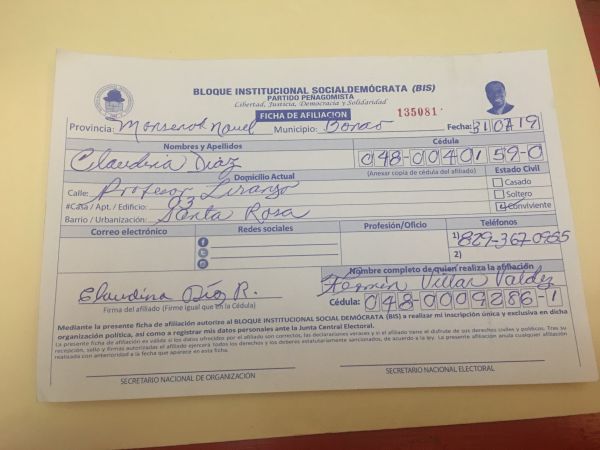 BLOQUE INSTITUCIONAL SOCIALDEMÓCRATA (BIS)
PARTIDO PEÑAGOMISTA
Libertad, Justicia, Democracia y Solidaridad
FICHA DE AFILIACIÓN 135081
Provincia: Monseñor Nouel Municipio: Bonao Fecha: 31 07 19
Nombres y Apellidos Cédula
Claudina Díaz 048-0040159-0
Domicilio Actual (Anexar copia de cédula del afiliado) Estado Civil
Calle: Profesor Liranzo Casado
#Casa / Apt. / Edificio: 93 Soltero
Barrio / Urbanización: Santa Rosa Conviviente
Correo electrónico Redes sociales Profesión/Oficio Teléfonos
1) 829-367-0955
2)
Nombre completo de quien realiza la afiliación
Claudina Díaz R. Villar Valdez
Firma del afiliado (Firme igual que en la Cédula) Cédula: 048-0009286-1
Mediante la presente ficha de afiliación autorizo al BLOQUE INSTITUCIONAL SOCIALDEMÓCRATA (BIS) a realizar mi inscripción única y exclusiva en dicha
organización política, así como a registrar mis datos personales ante la Junta Central Electoral.
La presente ficha de afiliación es válida si los datos ofrecidos por el afiliado son correctos, las declaraciones veraces y si el afiliado tiene el disfrute de sus derechos civiles y políticos. Tras su
recepción, sello y firmas autorizadas el afiliado ejercerá todos los derechos y los deberes estatutariamente sancionados, de acuerdo a la ley. La presente afiliación anula cualquier afiliación
realizada con anterioridad a la fecha que aparece en esta ficha.
SECRETARIO NACIONAL DE ORGANIZACIÓN SECRETARIO NACIONAL ELECTORAL